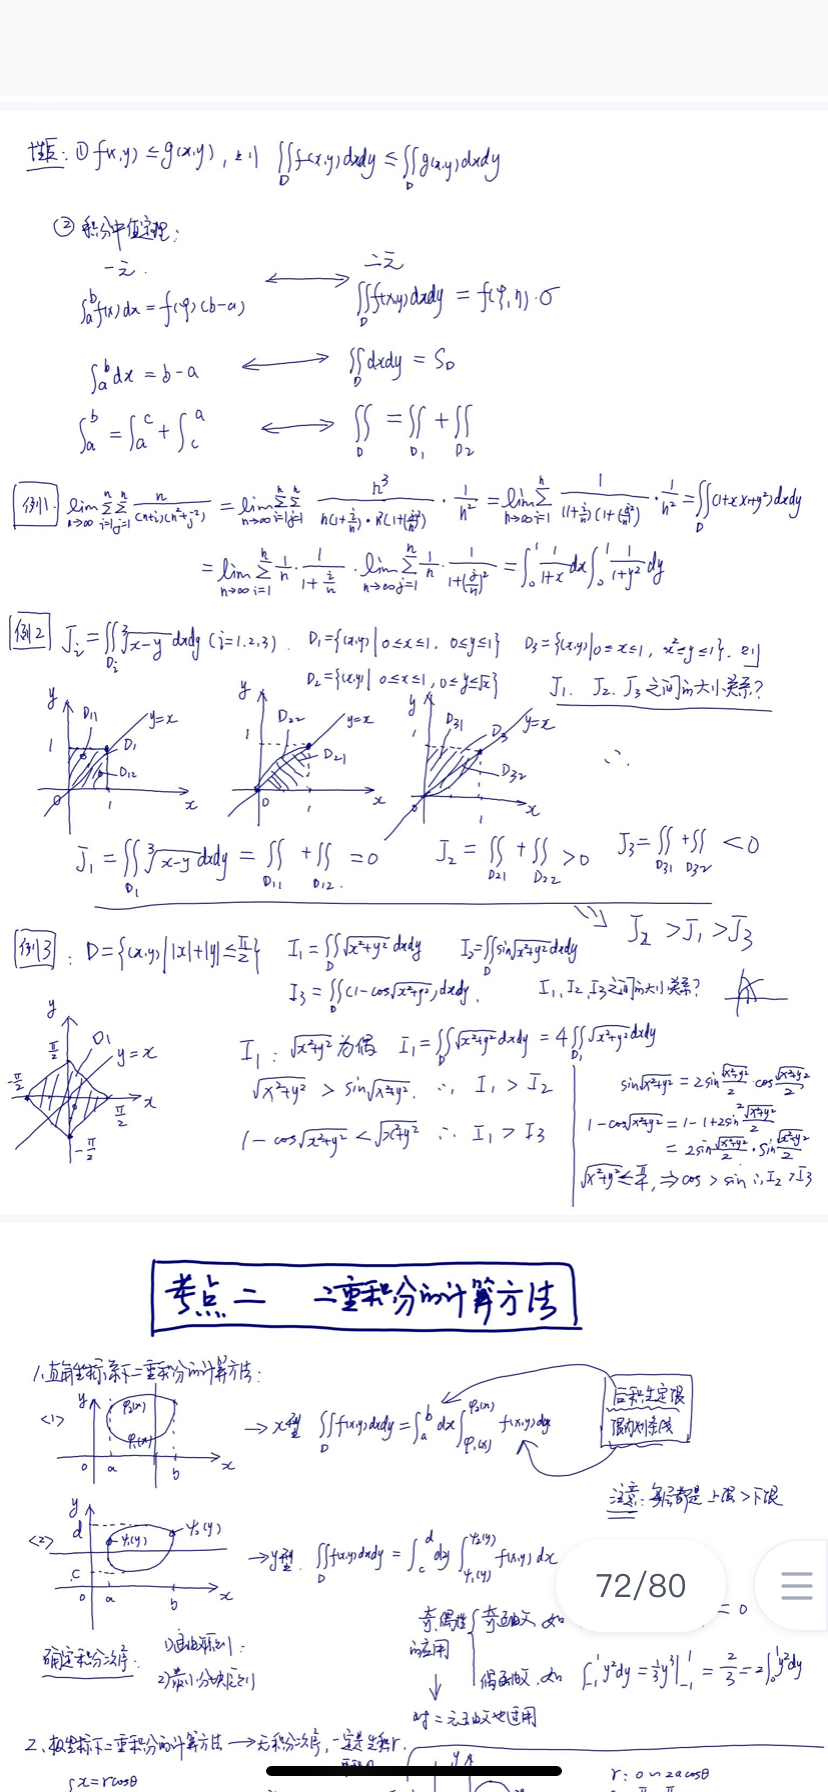 性质: ① f(x,y) ≤ g(x,y), 则 ∬_D f(x,y)dxdy ≤ ∬_D g(x,y)dxdy
② 积分中值定理:
一元. ⟷ 二元
∫_a^b f(x)dx = f(φ)(b-a) ∬_D f(x,y)dxdy = f(φ,η)·σ
∫_a^b dx = b-a ⟷ ∬_D dxdy = S_D
∫_a^b = ∫_a^c + ∫_c^a ⟷ ∬_D = ∬_D1 + ∬_D2
例1. lim_{n→∞} Σ_{i=1}^n Σ_{j=1}^n n/((n+i)(n²+j²)) = lim_{n→∞} Σ_{i=1}^n Σ_{j=1}^n n³/(n(1+i/n)·n²(1+(j/n)²)) · 1/n² = lim_{n→∞} Σ_{i=1}^n 1/((1+i/n)(1+(j/n)²)) · 1/n² = ∬_D (1+x)(1+y²)dxdy
= lim_{n→∞} Σ_{i=1}^n 1/n · 1/(1+i/n) · lim_{n→∞} Σ_{j=1}^n 1/n · 1/(1+(j/n)²) = ∫_0^1 1/(1+x) dx ∫_0^1 1/(1+y²) dy
例2 J_i = ∬_{Di} ∛(x-y) dxdy (i=1.2.3). D1={(x,y)|0≤x≤1, 0≤y≤1} D3={(x,y)|0≤x≤1, x²≤y≤1}. 则
D2={(x,y)|0≤x≤1, 0≤y≤√x} J1. J2. J3之间的大小关系?
y D11 y=x 1 D1 D12 0 1 x
y D22 y=x 1 D21 0 1 x
y D31 D3 y=x 1 D32 0 1 x
∴
J1 = ∬_D1 ∛(x-y) dxdy = ∬_D11 + ∬_D12. = 0 J2 = ∬_D21 + ∬_D22 > 0 J3 = ∬_D31 + ∬_D32 < 0
⇒ J2 > J1 > J3
例3: D={(x,y)||x|+|y|≤π/2} I1 = ∬_D √(x²+y²) dxdy I2 = ∬_D sin√(x²+y²) dxdy
I3 = ∬_D (1-cos√(x²+y²))dxdy. I1, I2, I3之间的大小关系?
y π/2 D1 y=x -π/2 π/2 x -π/2
I1: √(x²+y²) 为偶 I1 = ∬_D √(x²+y²) dxdy = 4∬_D1 √(x²+y²) dxdy
√(x²+y²) > sin√(x²+y²). ∴ I1 > I2
1-cos√(x²+y²) < √(x²+y²) ∴ I1 > I3
sin√(x²+y²) = 2sin √(x²+y²)/2 · cos √(x²+y²)/2
1-cos√(x²+y²) = 1-1+2sin² √(x²+y²)/2
= 2sin √(x²+y²)/2 · sin √(x²+y²)/2
√(x²+y²) ≤ π/4, ⇒ cos > sin ∴ I2 > I3
考点二 二重积分的计算方法
1.直角坐标系下二重积分的计算方法:
<1> y φ2(x) φ1(x) 0 a b x
→ x型 ∬_D f(x,y)dxdy = ∫_a^b dx ∫_{φ1(x)}^{φ2(x)} f(x,y)dy
后积先定限
限内划条线
注意: 每层都是上限>下限
<2> y d ψ1(y) ψ2(y) c 0 a b x
→ y型. ∬_D f(x,y)dxdy = ∫_c^d dy ∫_{ψ1(y)}^{ψ2(y)} f(x,y)dx
72/80
确定积分次序:
1)
2)最小分块原则
奇偶性的应用
奇函数, 如 = 0
偶函数, 如 ∫_{-1}^1 y²dy = 1/3 y³|_{-1}^1 = 2/3 = 2∫_0^1 y²dy
对二元函数也适用
2、极坐标下二重积分的计算方法 → 无积分次序, 一定是先积r.
x = rcosθ
r: 0 ~ 2acosθ